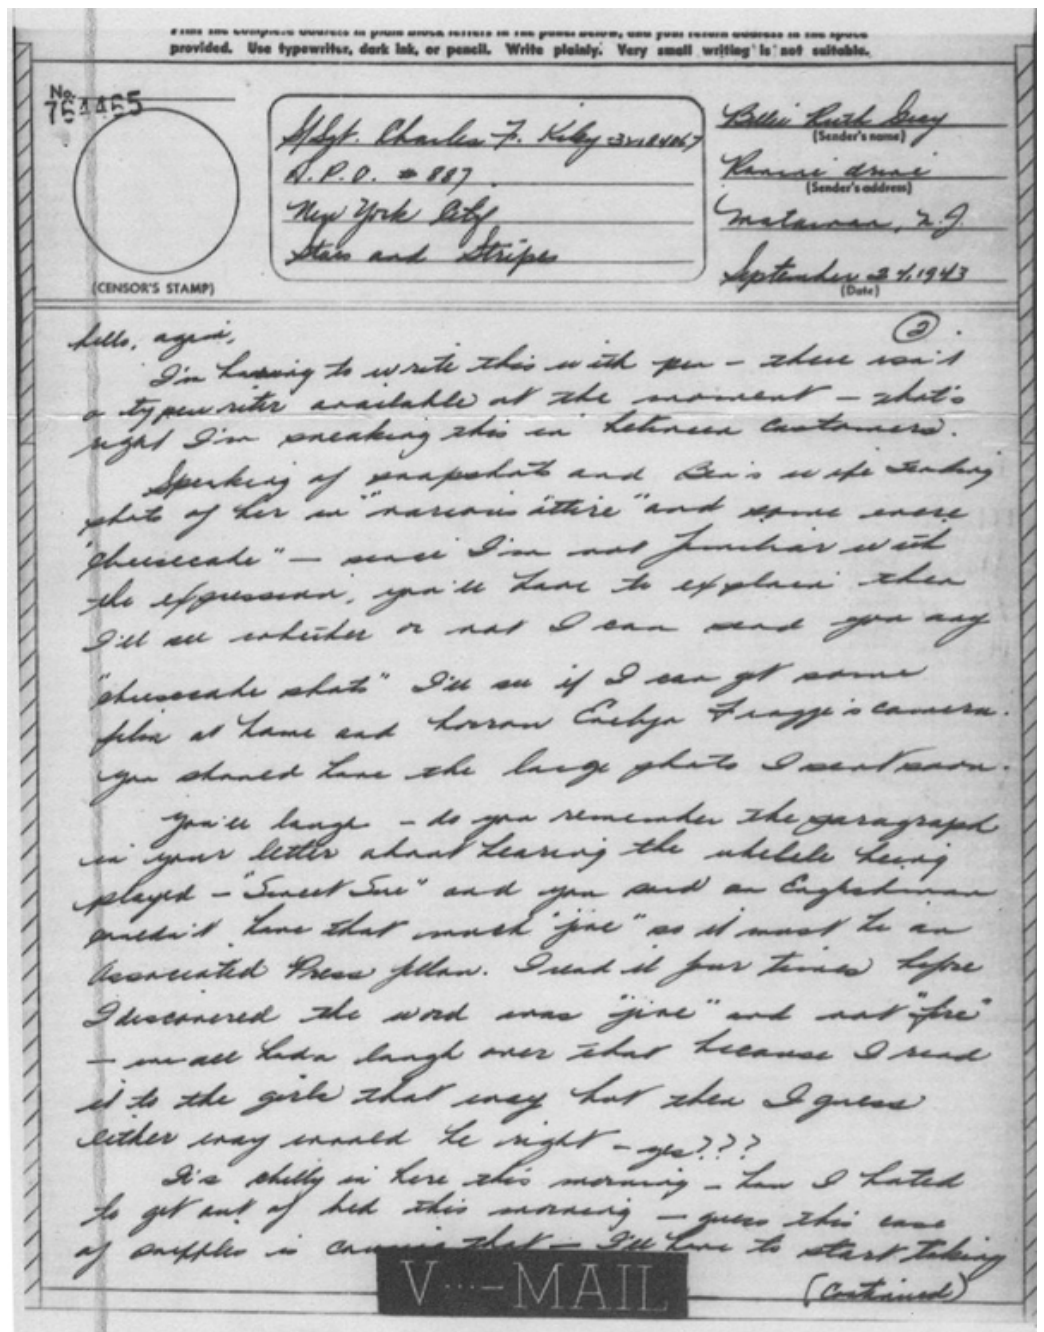 Print the complete address in plain block letters in the panel below, and your return address in the space
provided. Use typewriter, dark ink, or pencil. Write plainly. Very small writing is not suitable.
No.
764465
(CENSOR'S STAMP)
S/Sgt. Charles F. Kiley 32184067
A.P.O. # 887
New York City
Stars and Stripes
Billie Ruth Gray
(Sender's name)
Ravine drive
(Sender's address)
Matawan, N.J.
September 24, 1943
(Date)
2
hello, again,
I'm having to write this with pen – there isn't
a typewriter available at the moment – that's
right I'm sneaking this in between customers.
Speaking of snapshots and Ben's wife sending
shots of her in "various attire" and some more
"cheesecake" – since I'm not familiar with
the expression, you'll have to explain then
I'll see whether or not I can send you any
"cheesecake shots" I'll see if I can get some
film at home and borrow Evelyn camera.
you should have the large photo I sent soon.
you'll laugh – do you remember the paragraph
in your letter about hearing the ukelele being
played – "Sweet Sue" and you said an Englishman
couldn't have that much "jive" so it must be an
Associated Press fellow. I read it four times before
I discovered the word was "jive" and not "fire"
– we all had a laugh over that because I read
it to the girls that way but then I guess
either way would be right – yes???
It's chilly in here this morning – how I hated
to get out of bed this morning – guess this case
of sniffles is causing that – I'll have to start taking
(Continued)
V···–MAIL